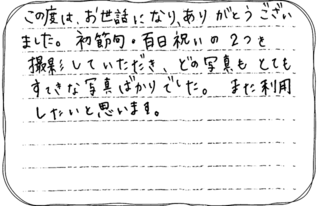 この度は、お世話になり、ありがとうござい
ました。初節句・百日祝いの2つを
撮影していただき、どの写真もとても
すてきな写真ばかりでした。また利用
したいと思います。